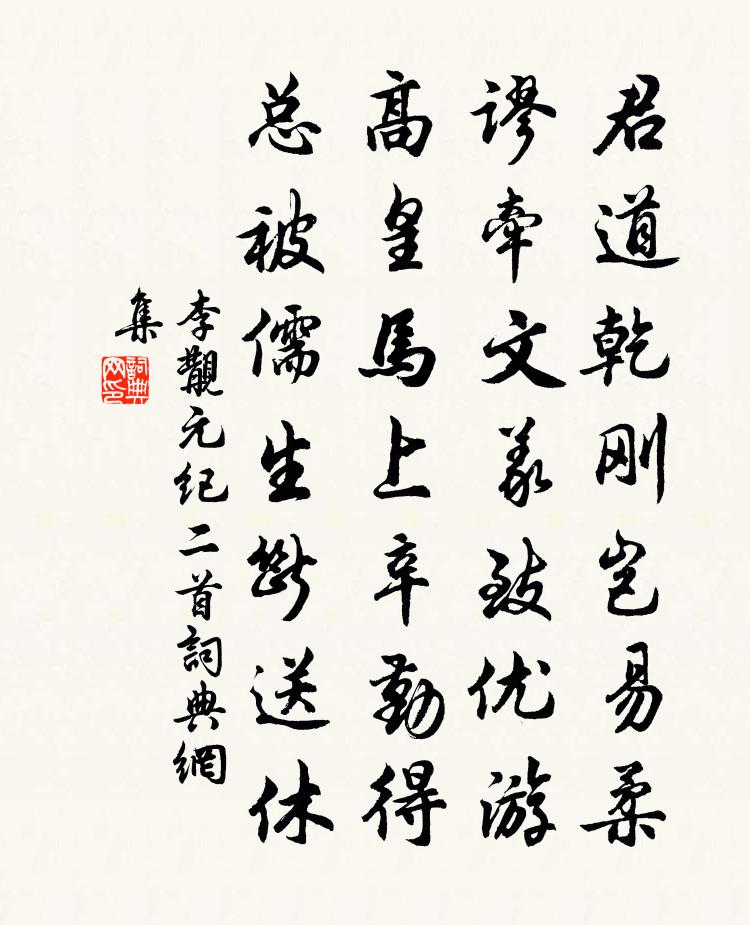 君道乾刚岂易柔
谬牵文义致优游
高皇馬上辛勤得
总被儒生断送休
李覯元纪二首詞典網
集
詞典
网印